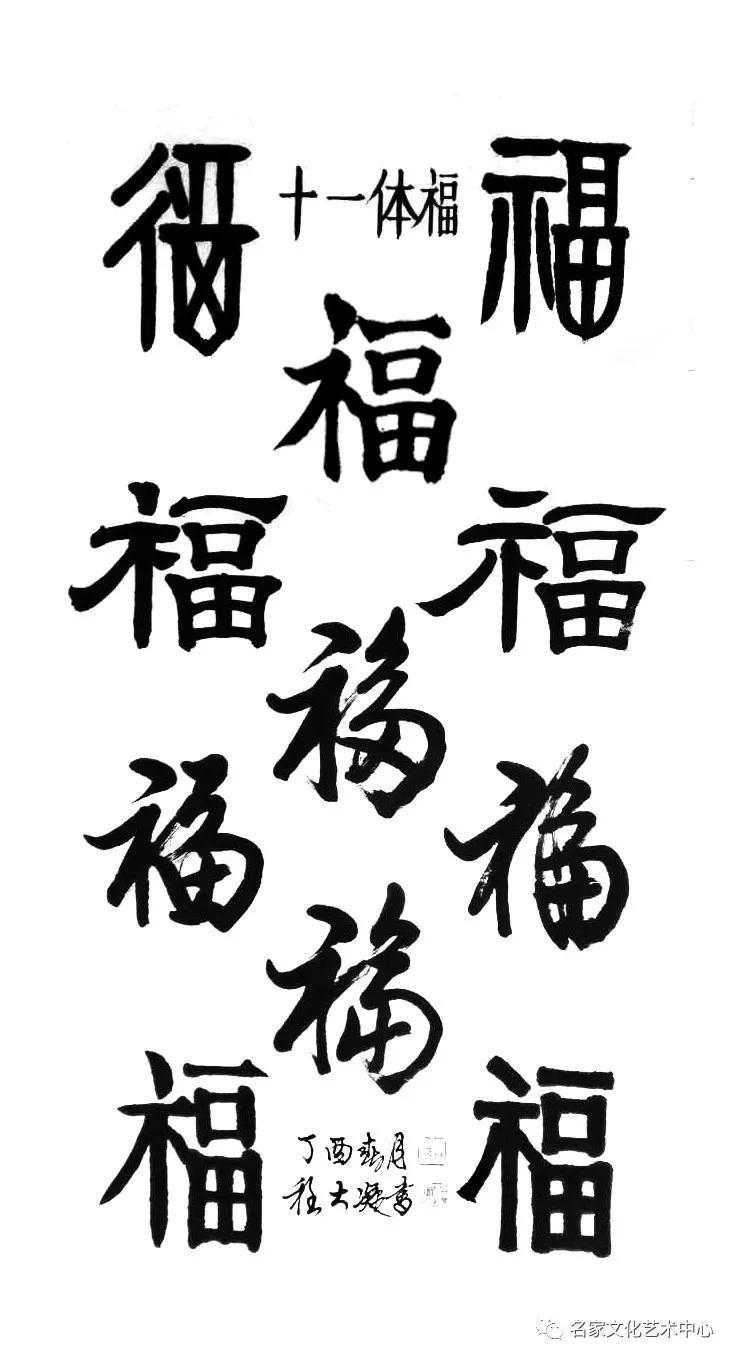 福 十一体福 福
福
福 福
福
福 福
福
福 福
丁酉春月
程大凝书
名家文化艺术中心